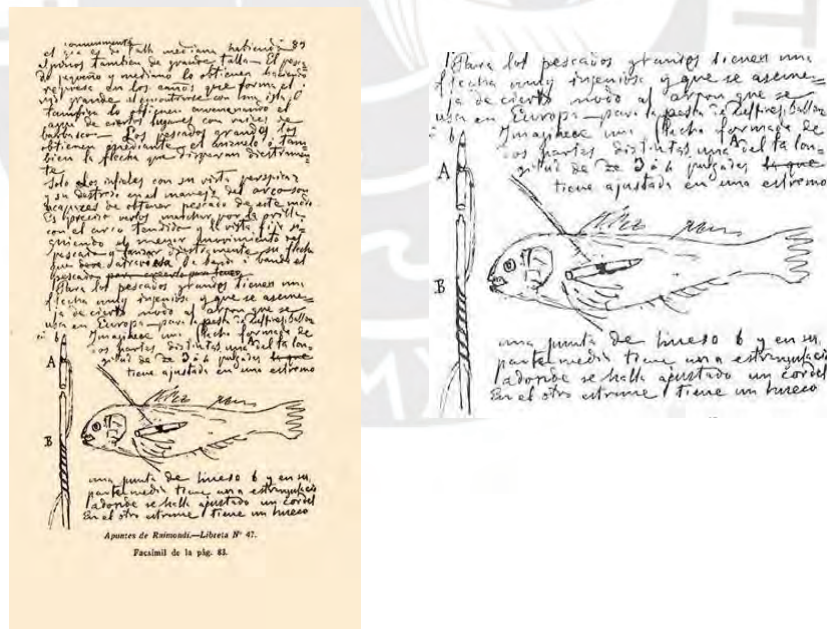 comunmente
el que es de talla mediana habiendo 83
algunos tambien de grande talla. El pes
de pequeño y mediano lo obtienen haciendo
represas en los caños que forma el
rio grande al encontrarse con una isla
tambien lo obtienen envenenando el
agua de ciertos lugares con raices de
barbasco. Los pescados grandes los
obtienen mediante el anzuelo o tam
bien la flecha que disparan diestramen=
te
Solo los infieles con su vista perspicaz
y su destreza en el manejo del arco son
capaces de obtener pescado de este modo
Es preciso verlos marchar por la orilla
con el arco tendido y la vista fija si=
guiendo el menor movimiento del
pescado y lanzar diestramente su flecha
que atraviesa de banda a banda el
pescado
Para los pescados grandes tienen una
flecha muy ingeniosa y que se aseme=
ja de cierto modo al arpon que se
usa en Europa para la pesca de
Imaginese una flecha formada de
dos partes distintas una A de la lon=
gitud de 3 ó 4 pulgadas la que
tiene ajustada en una estremo
b
A
B
una punta de hueso b y en su
parte media tiene una estrangulacio
adonde se halla ajustado un cordel
En el otro estremo tiene un hueco
Apuntes de Raimondi.—Libreta Nº 47.
Facsímil de la pág. 83.
Para los pescados grandes tienen una
flecha muy ingeniosa y que se aseme=
ja de cierto modo al arpon que se
usa en Europa para la pesca de
b Imaginese una flecha formada de
dos partes distintas una A de la lon=
gitud de 3 ó 4 pulgadas la que
tiene ajustada en una estremo
A
B
una punta de hueso b y en su
parte media tiene una estrangulacio
adonde se halla ajustado un cordel
En el otro estremo tiene un hueco